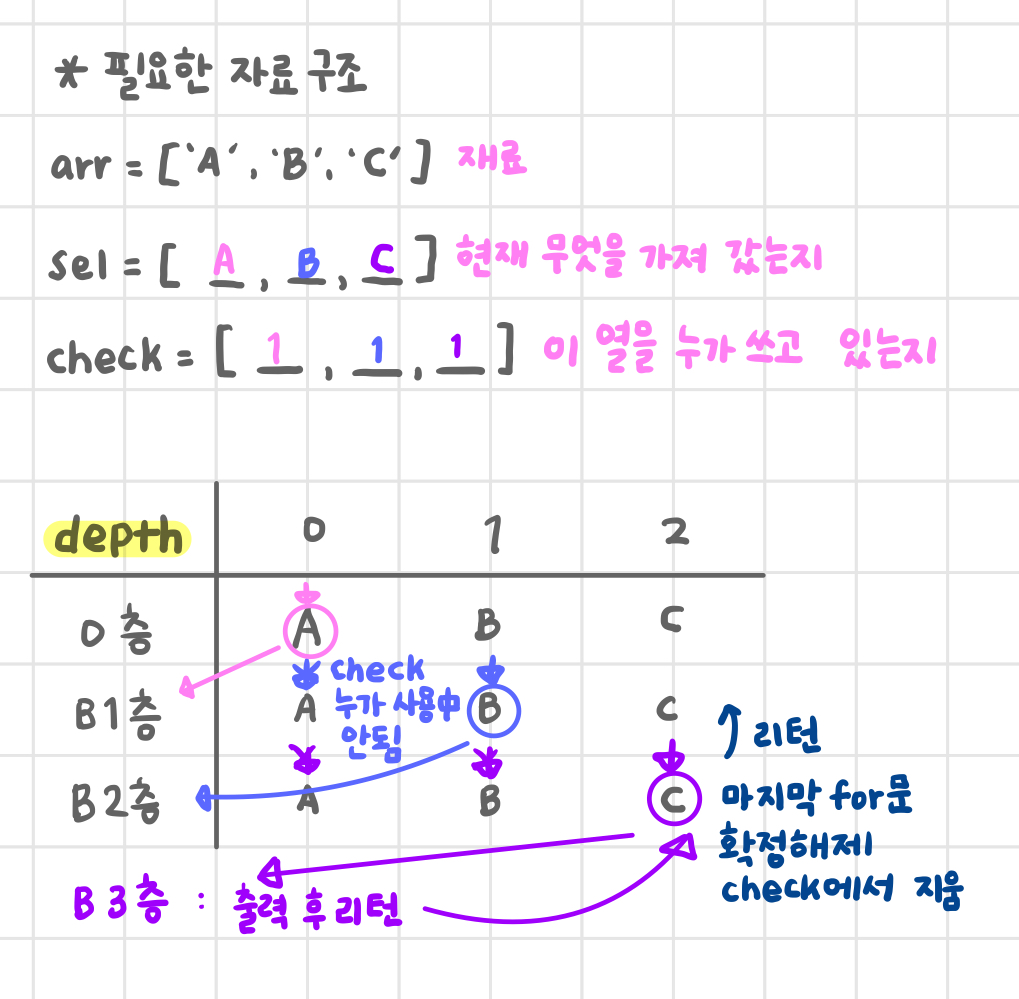 * 필요한 자료 구조
arr = ['A', 'B', 'C'] 재료
sel = [ A , B , C ] 현재 무엇을 가져 갔는지
check = [ 1 , 1 , 1 ] 이 열을 누가 쓰고 있는지
depth 0 1 2
0층 A B C
check
B1층 A 누가 사용中 B C
안됨
리턴
B2층 A B C 마지막 for문
확정해제
check에서 지움
B3층 : 출력 후 리턴